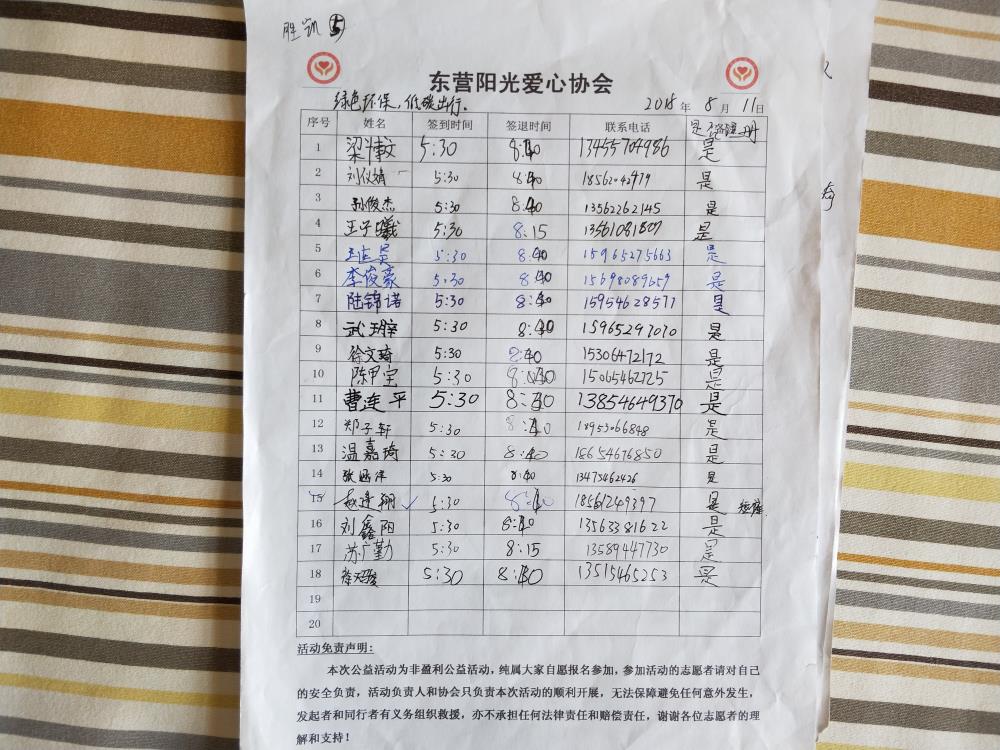 胜凯⑤
东营阳光爱心协会
绿色环保,低碳出行。 2018年8月11日
序号 姓名 签到时间 签退时间 联系电话 是否注册
1 5:30 8:40 13455704986 是
2 刘仪婧 5:30 8:40 18562042979 是
3 孙俊杰 5:30 8:40 13562262145 是
4 王子曦 5:30 8:15 13561081807 是
5 5:30 8:40 15965275663 是
6 李俊豪 5:30 8:40 15698089659 是
7 陆锦诺 5:30 8:40 15954628577 是
8 武玥辛 5:30 8:40 15965297070 是
9 徐文琦 5:30 8:40 15306472172 是
10 陈甲宝 5:30 8:40 15065462725 是
11 曹连平 5:30 8:40 13854649370 是
12 郑子轩 5:30 8:40 18953066848 是
13 温嘉琦 5:30 8:40 18654676850 是
14 5:30 8:40 13475462426 是
15 5:30 8:40 18561249397 是
16 刘鑫阳 5:30 8:40 13563381622 是
17 苏广勤 5:30 8:15 13589447730 是
18 5:30 8:40 13515465253 是
19
20
活动免责声明:
本次公益活动为非盈利公益活动,纯属大家自愿报名参加,参加活动的志愿者请对自己
的安全负责,活动负责人和协会只负责本次活动的顺利开展,无法保障避免任何意外发生,
发起者和同行者有义务组织救援,亦不承担任何法律责任和赔偿责任,谢谢各位志愿者的理
解和支持!